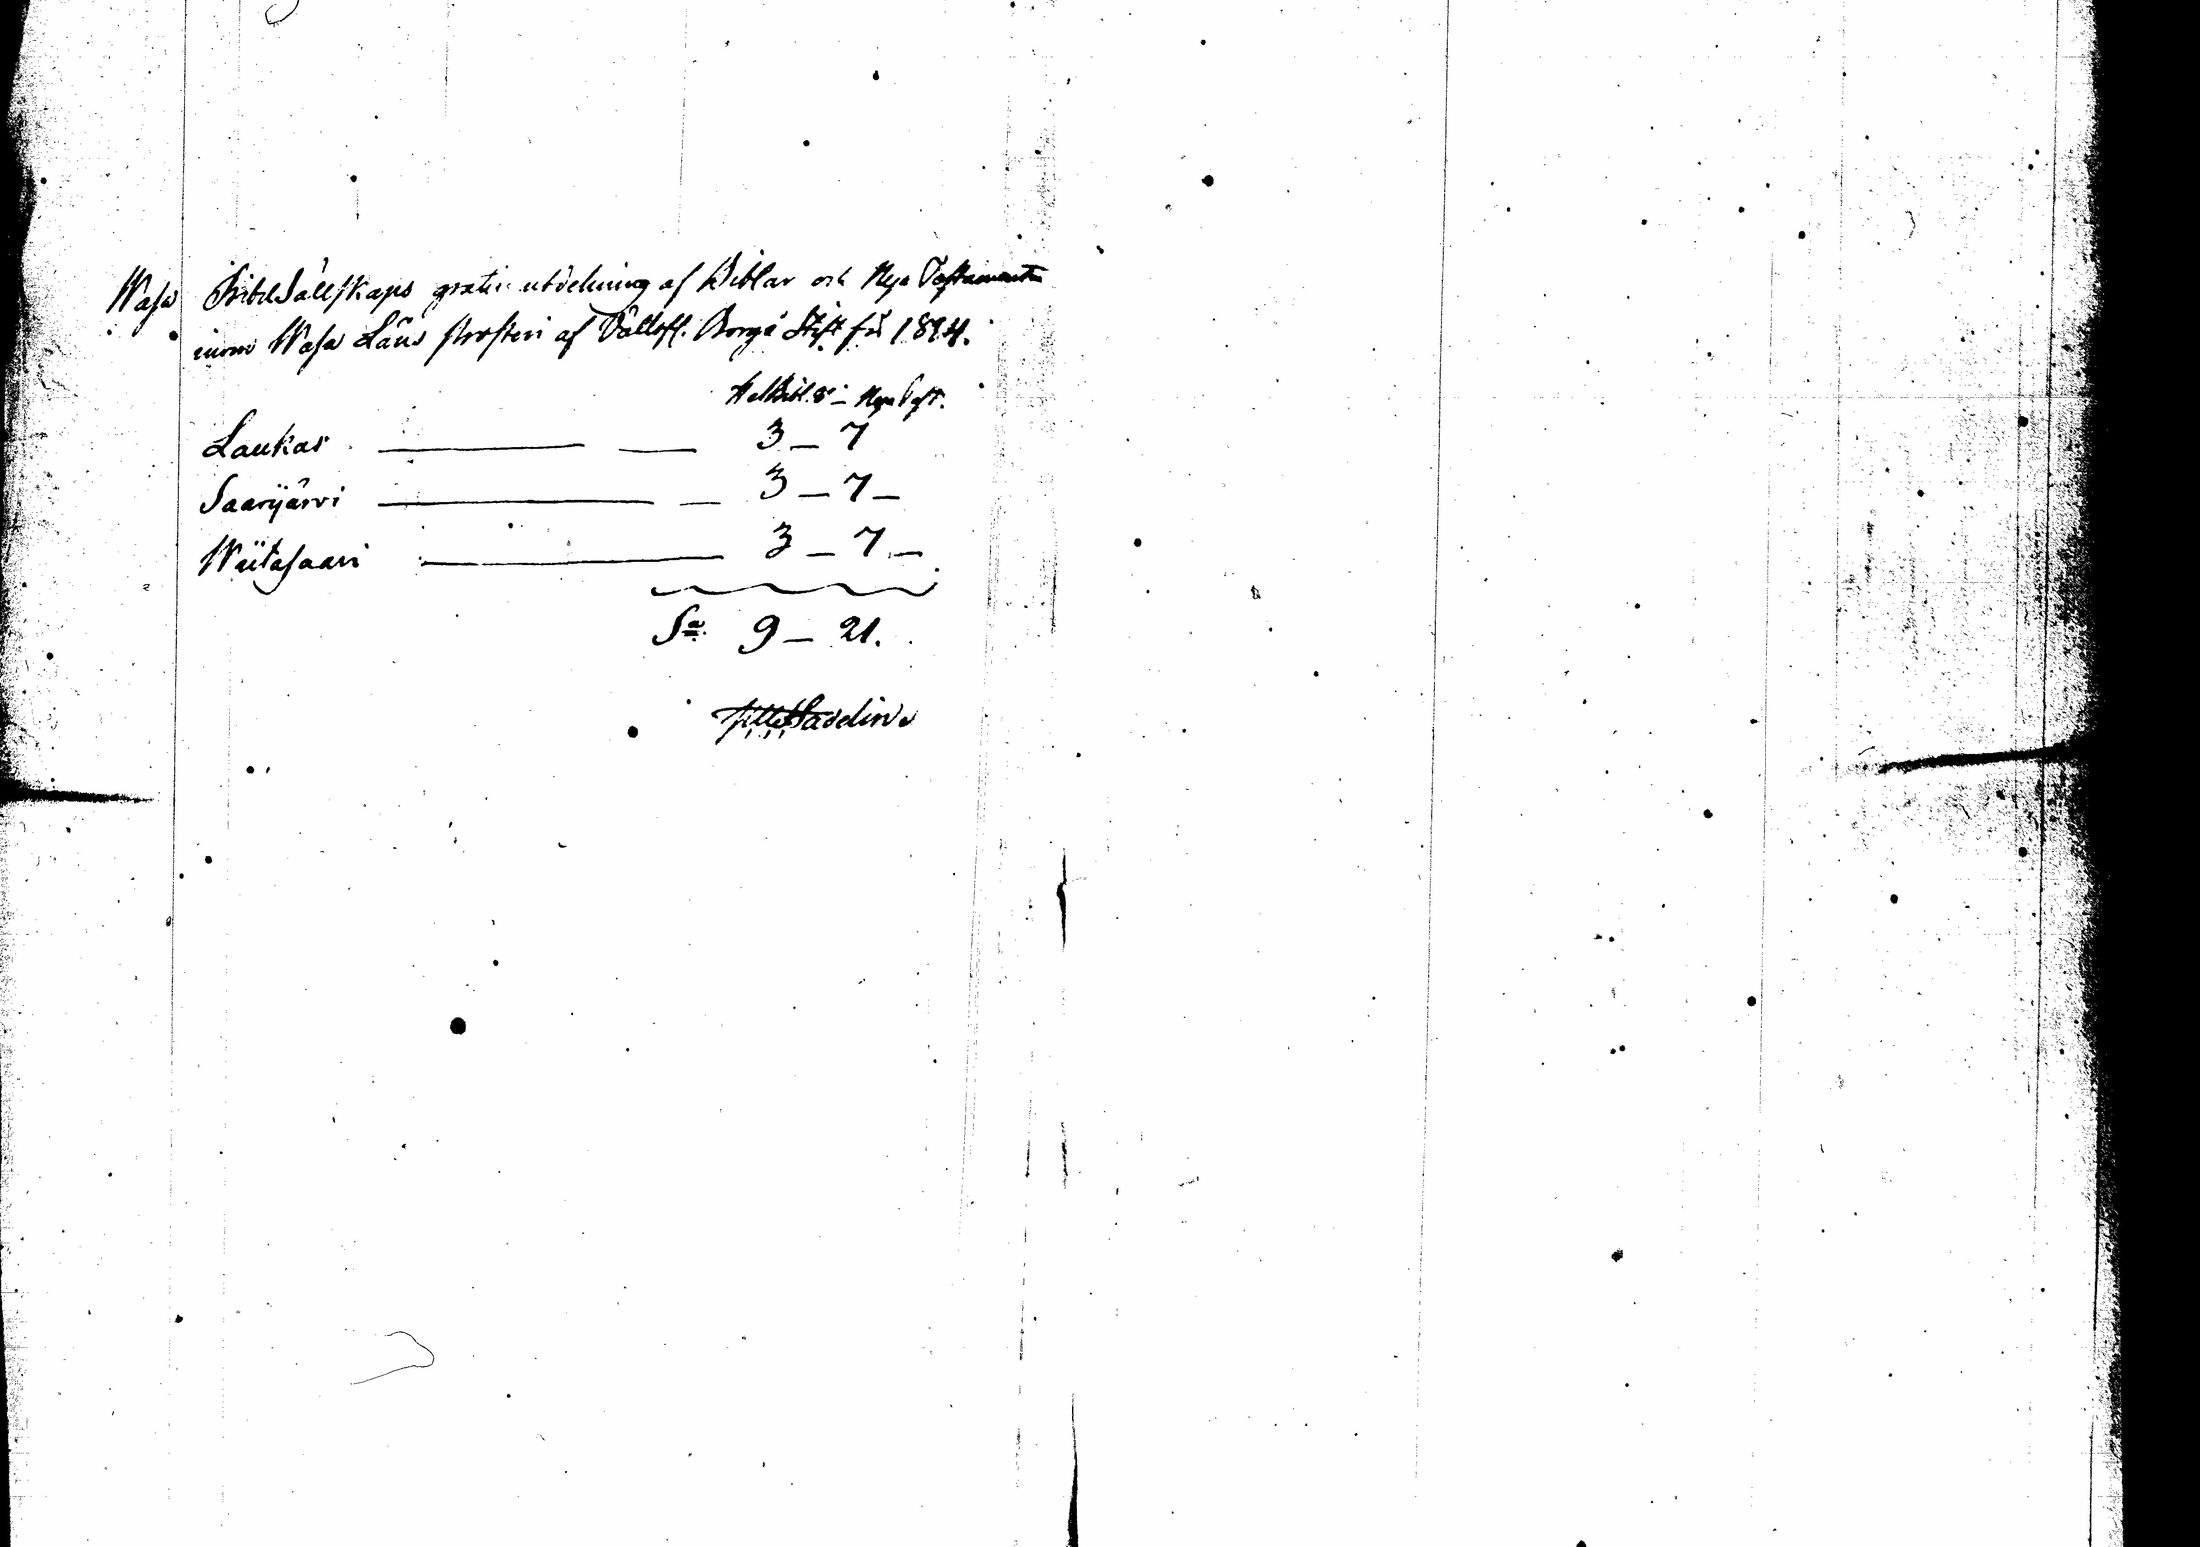 Wasa BibelSällskaps gratis utdelning af Biblar och Nya Testamente
inom Wasa Läns Prosteri af Vällofl. Borgå Stift för
Hel Bibl. 8º – Nya Test.
Laukas — — 3 – 7
Saarijärvi — — 3 – 7 –
Wiitasaari — 3 – 7 –
Sa 9 – 21.